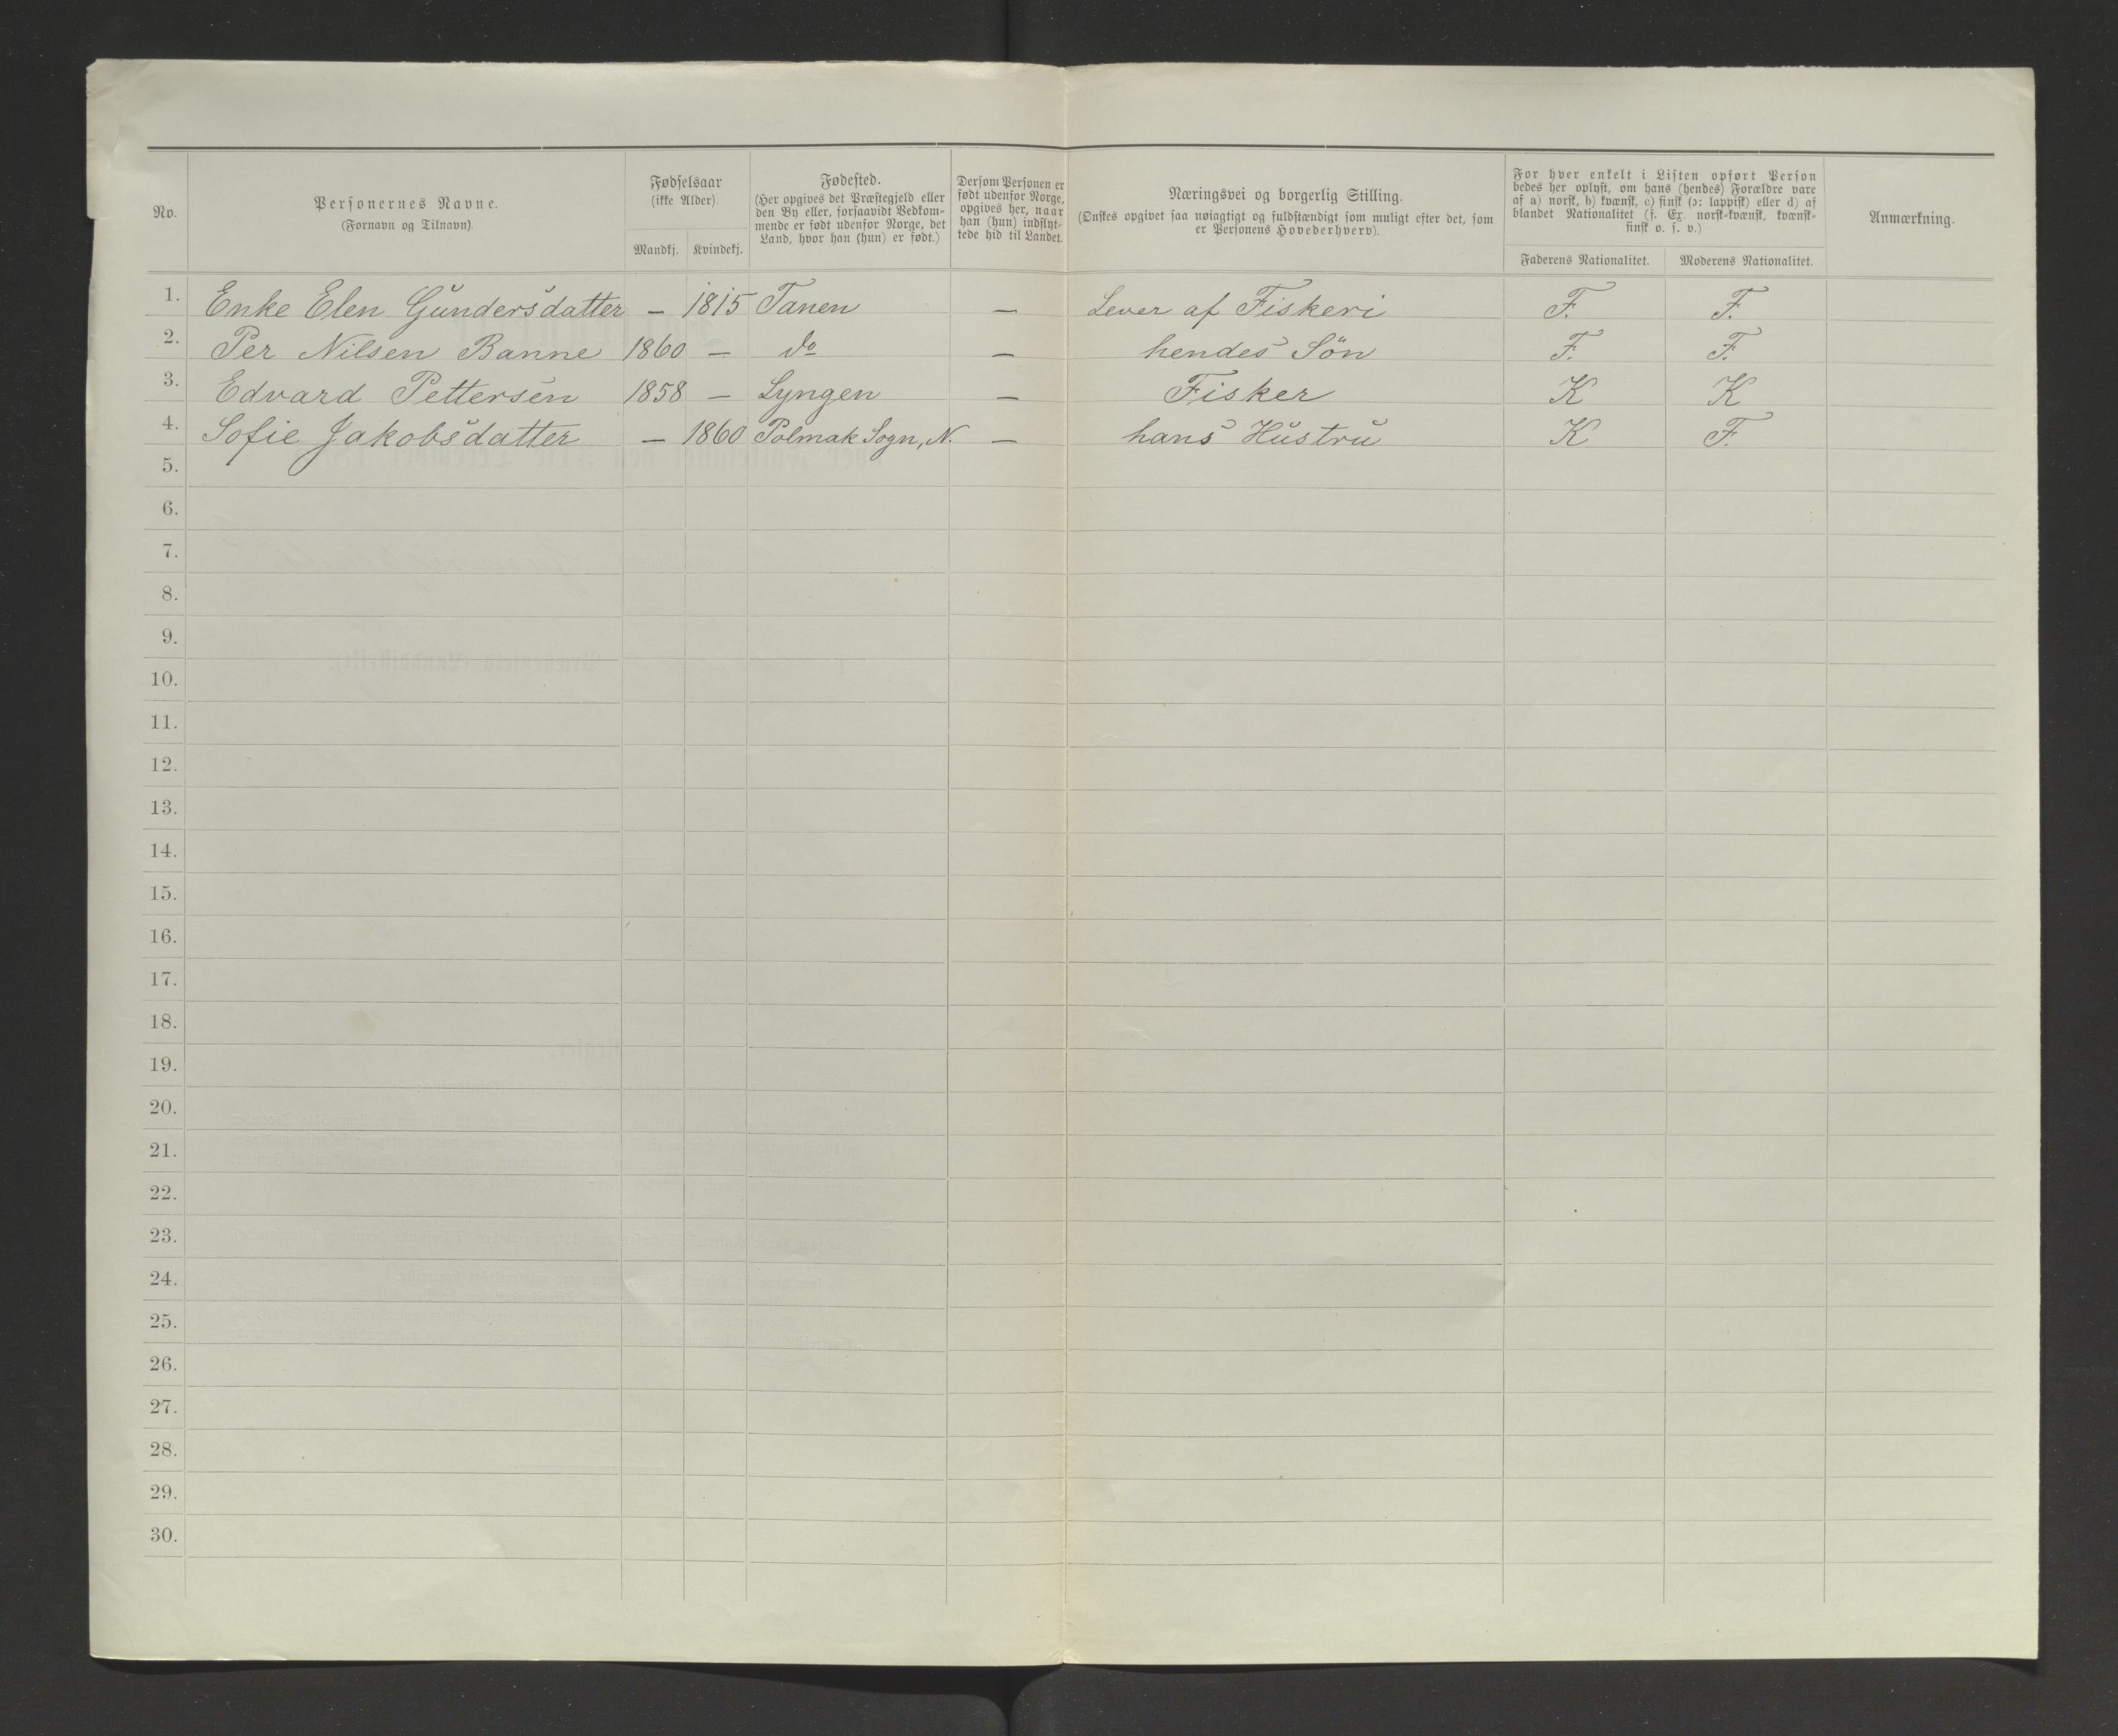 No.
Personernes Navne.
(Fornavn og Tilnavn).
Fødselsaar
(ikke Alder).
Mandkj. Kvindekj.
Fødested.
(Her opgives det Præstegjeld eller
den By eller, forsaavidt Vedkom-
mende er født udenfor Norge, det
Land, hvor han (hun) er født.)
Dersom Personen er
født udenfor Norge,
opgives her, naar
han (hun) indflyt-
tede hid til Landet.
Næringsvei og borgerlig Stilling.
(Ønskes opgivet saa nøiagtigt og fuldstændigt som muligt efter det, som
er Personens Hovederhverv).
For hver enkelt i Listen opført Person
bedes her oplyst, om hans (hendes) Forældre vare
af a) norsk, b) kvænsk, c) finsk (ɔ: lappisk) eller d) af
blandet Nationalitet (f. Ex. norsk-kvænsk, kvænsk-
finsk o. s. v.)
Faderens Nationalitet. Moderens Nationalitet.
Anmærkning.
1. Enke Elen Gundersdatter — 1815 Tanen — Lever af Fiskeri F. F.
2. Per Nilsen Banne 1860 — do — hendes Sön F. F.
3. Edvard Pettersen 1858 — Lyngen — Fisker K K
4. Sofie Jakobsdatter — 1860 Polmak Sogn, N. — hans Hustru K F.
5.
6.
7.
8.
9.
10.
11.
12.
13.
14.
15.
16.
17.
18.
19.
20.
21.
22.
23.
24.
25.
26.
27.
28.
29.
30.